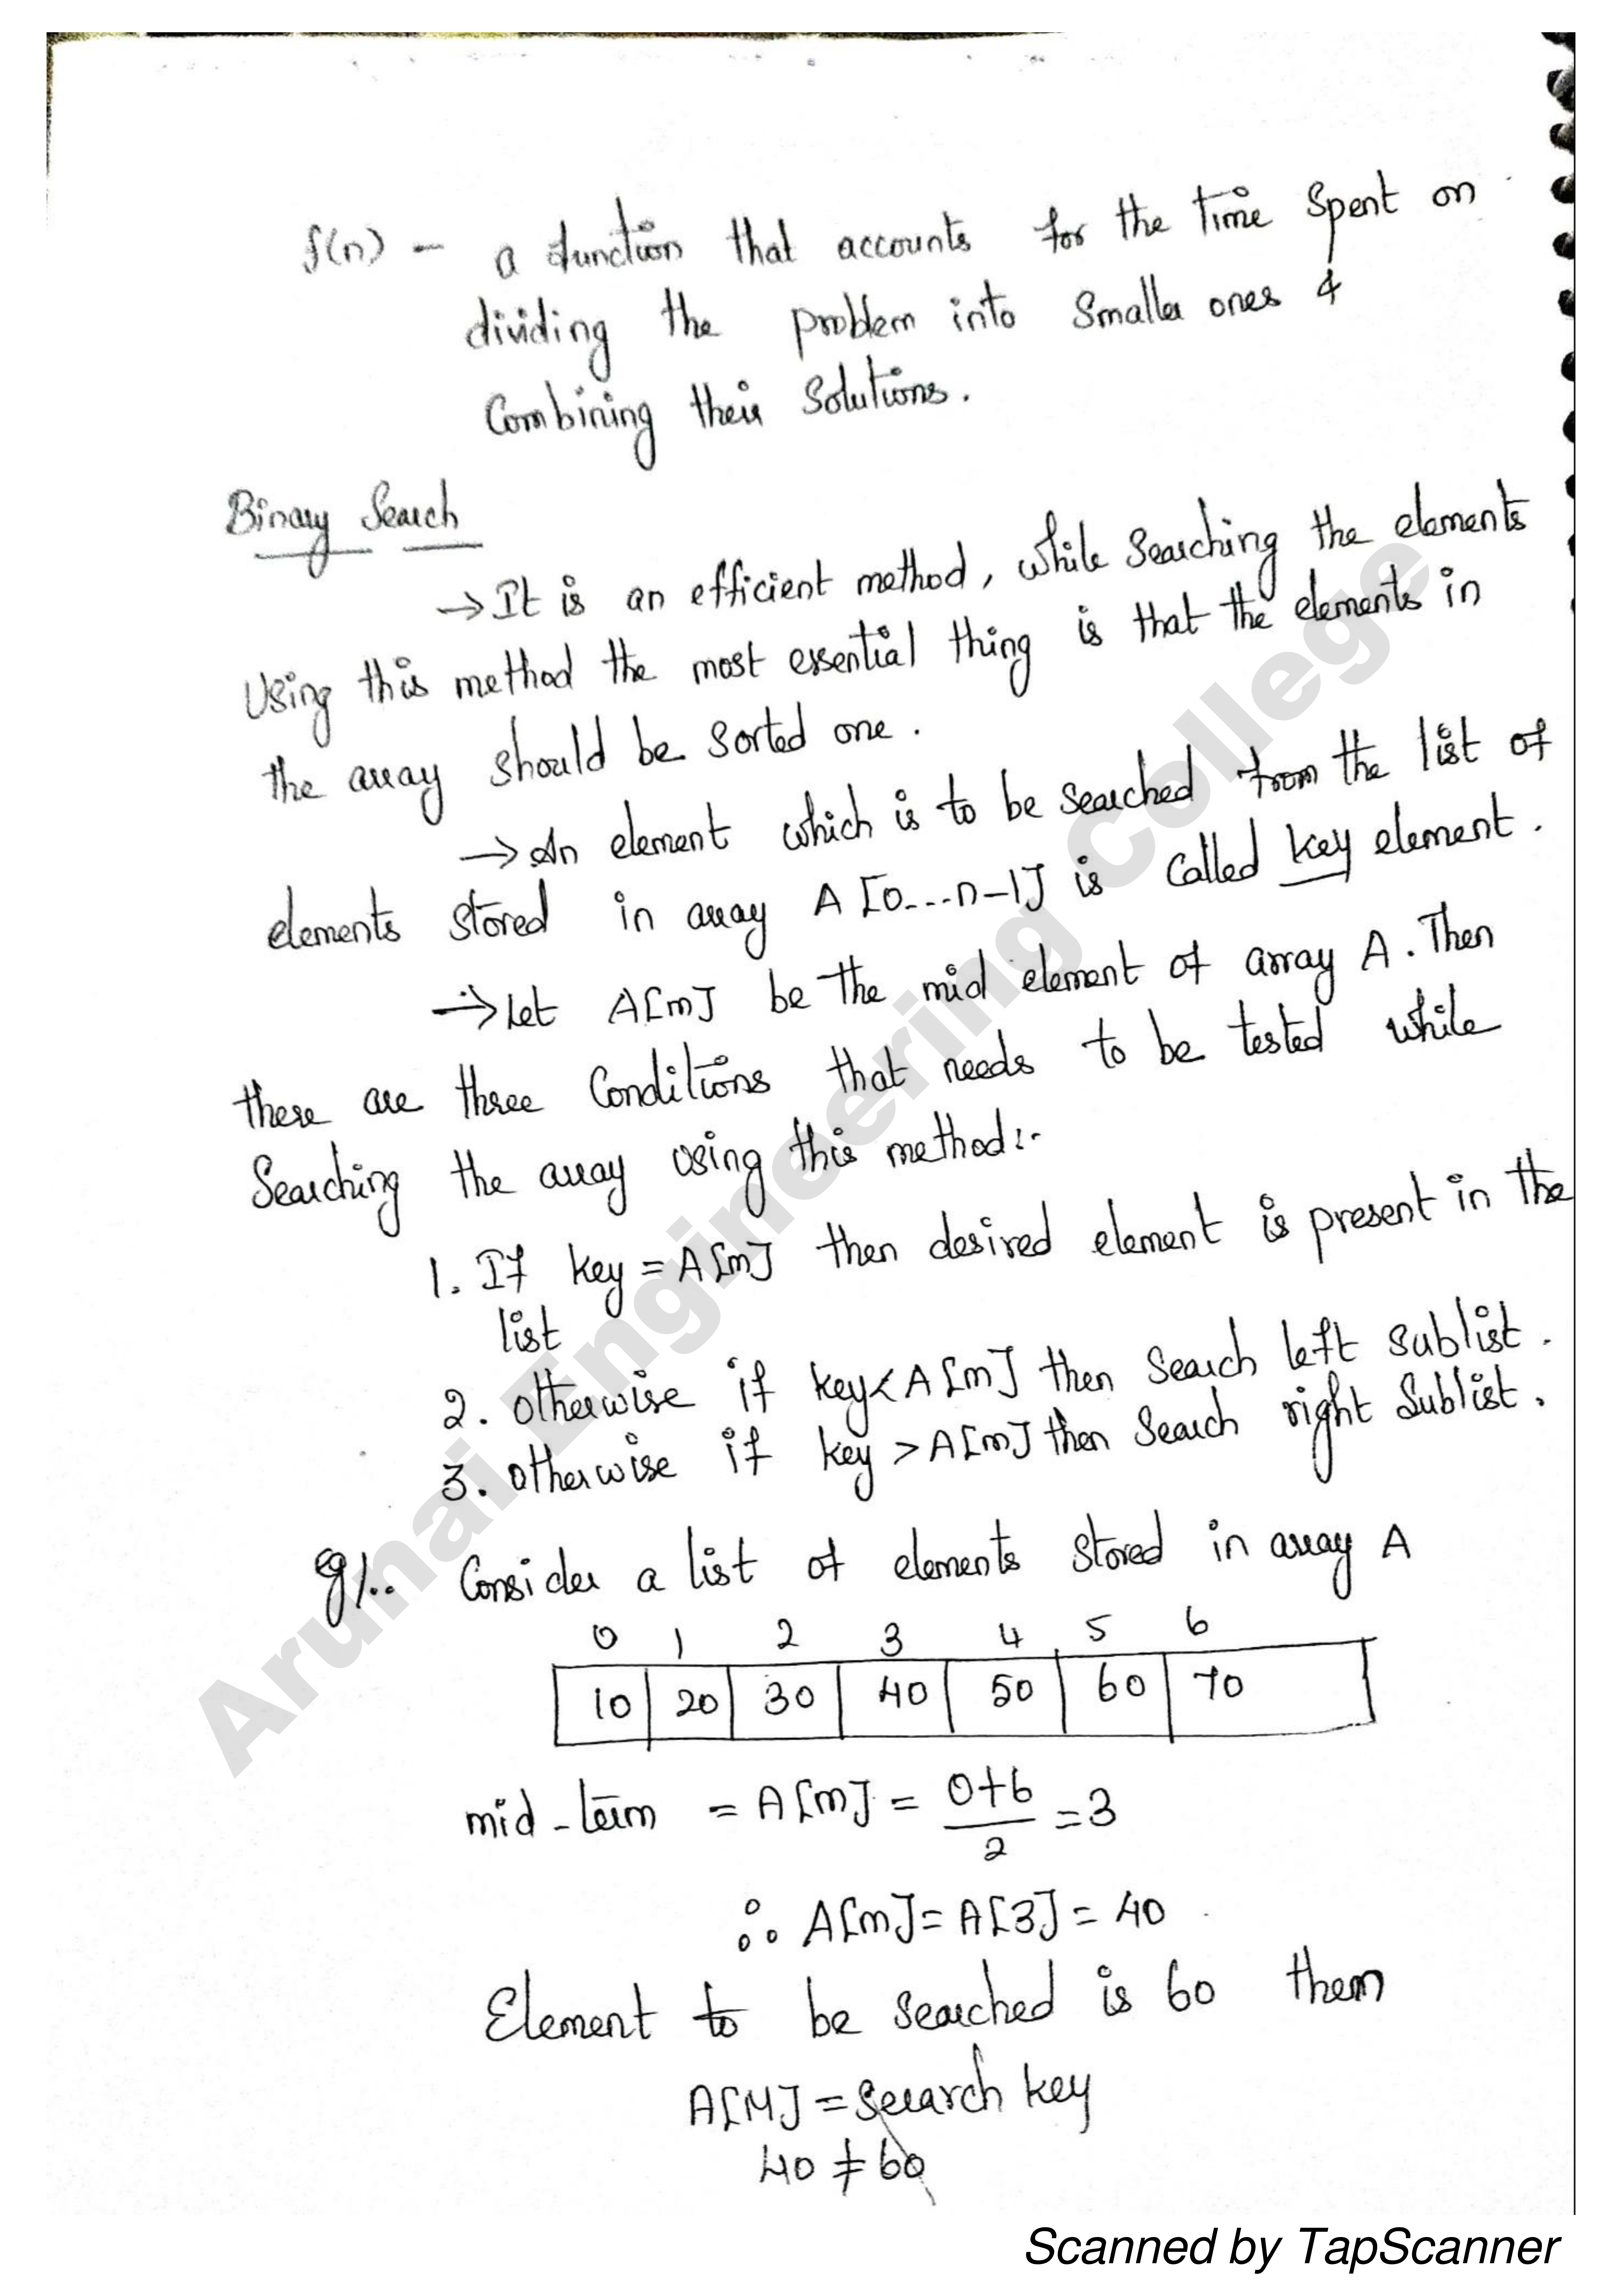 f(n) - a function that accounts for the time spent on
dividing the problem into smaller ones &
Combining their solutions.
Binary Search
→ It is an efficient method, while searching the elements
using this method the most essential thing is that the elements in
the array should be sorted one.
→ An element which is to be searched from the list of
elements stored in array A[0...n-1] is called key element.
→ Let A[m] be the mid element of array A. Then
there are three conditions that needs to be tested while
Searching the array using this method:-
1. If key = A[m] then desired element is present in the
list
2. otherwise if key < A[m] then search left sublist.
3. otherwise if key > A[m] then search right sublist.
eg/.. Consider a list of elements stored in array A
0 1 2 3 4 5 6
10 20 30 40 50 60 70
mid-term = A[m] = 0+6/2 = 3
∴ A[m] = A[3] = 40
Element to be searched is 60 then
A[M] = search key
40 ≠ 60
Arunai Engineering College
Scanned by TapScanner